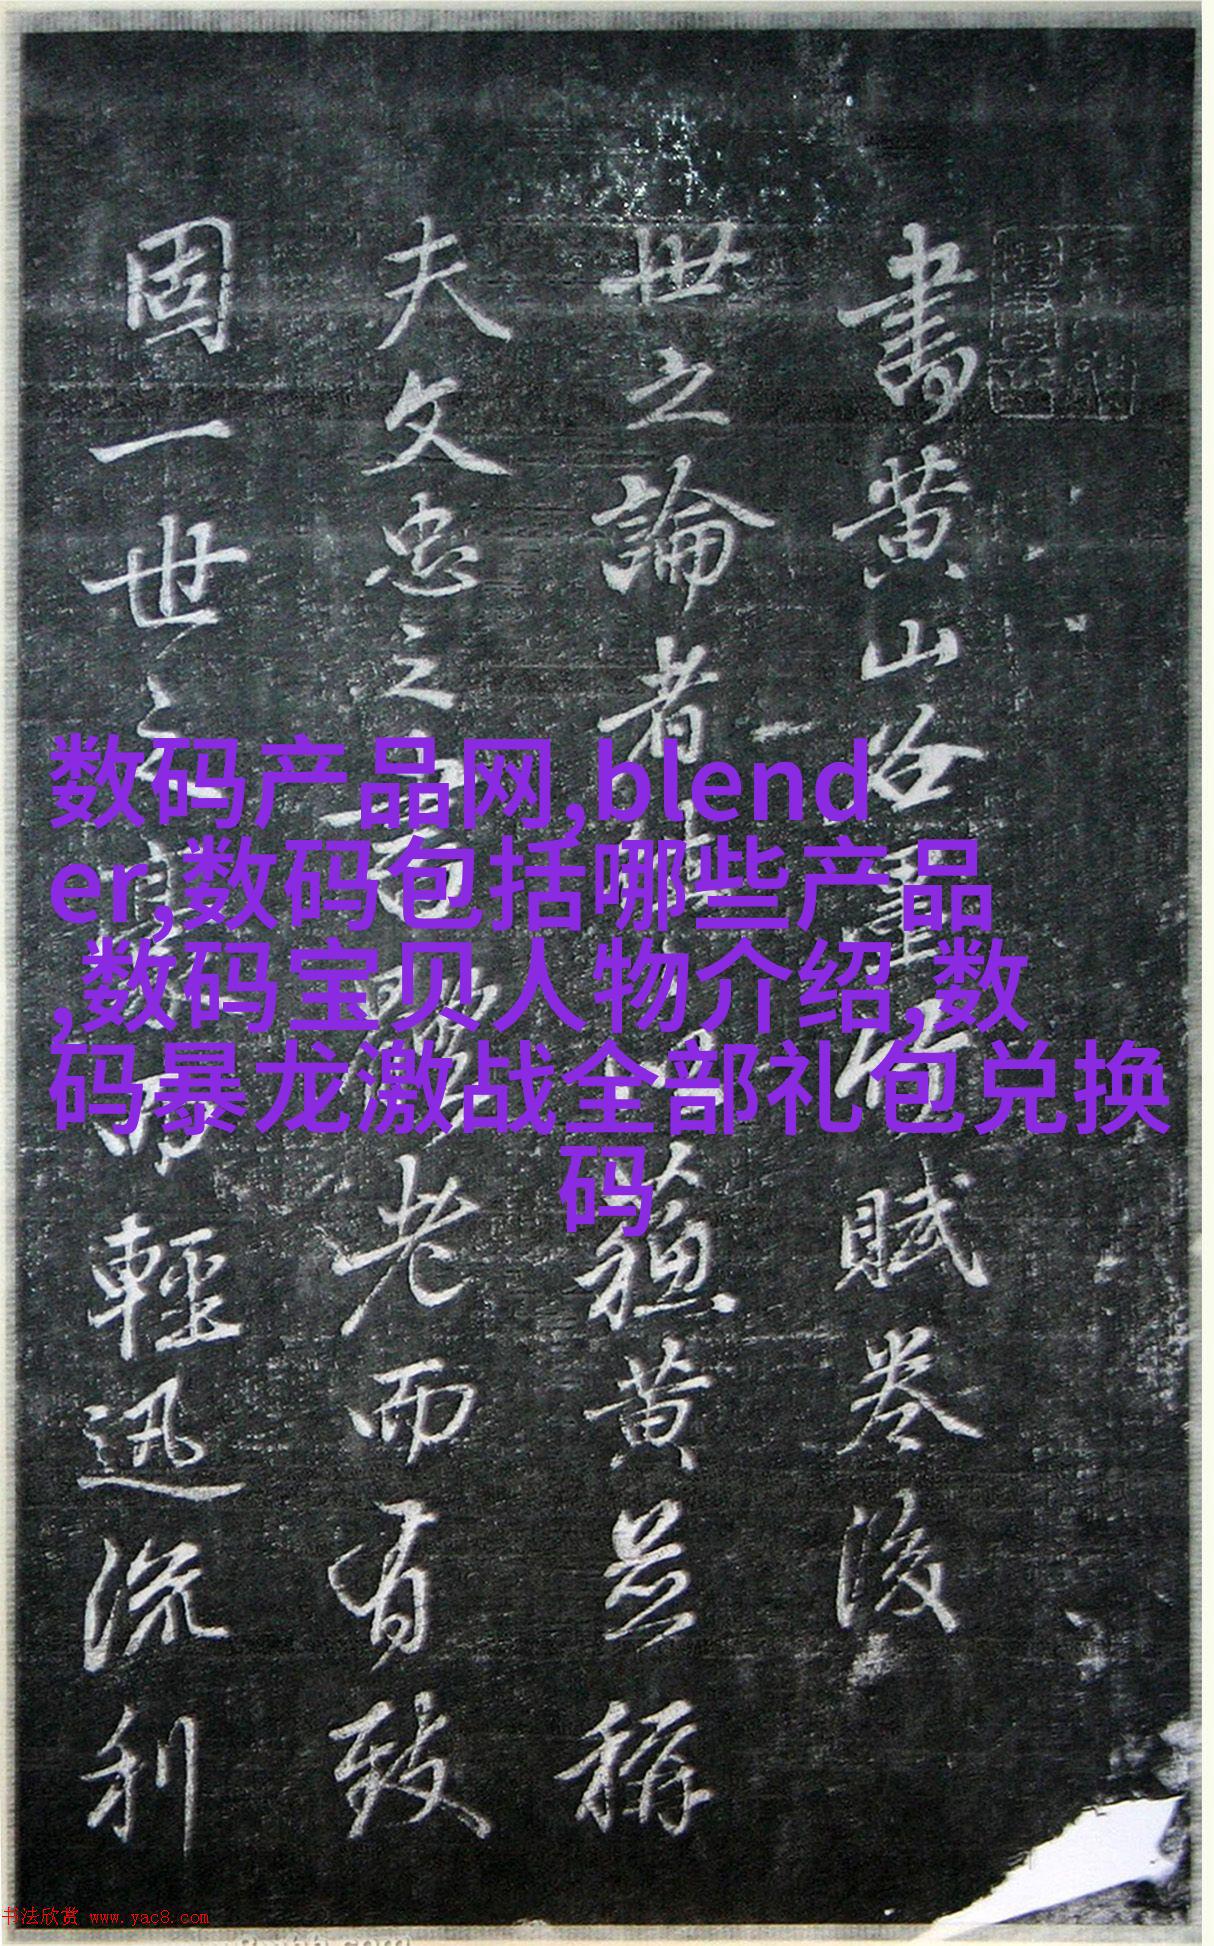 書黄山谷賦卷後
世之論者蘓黄並稱
夫文忠之書老而有致
固一世之輕迅流利
数码产品网,blend
er,数码包括哪些产品
,数码宝贝人物介绍,数
码暴龙激战全部礼包兑换
码
书法欣赏 www.yac8.com